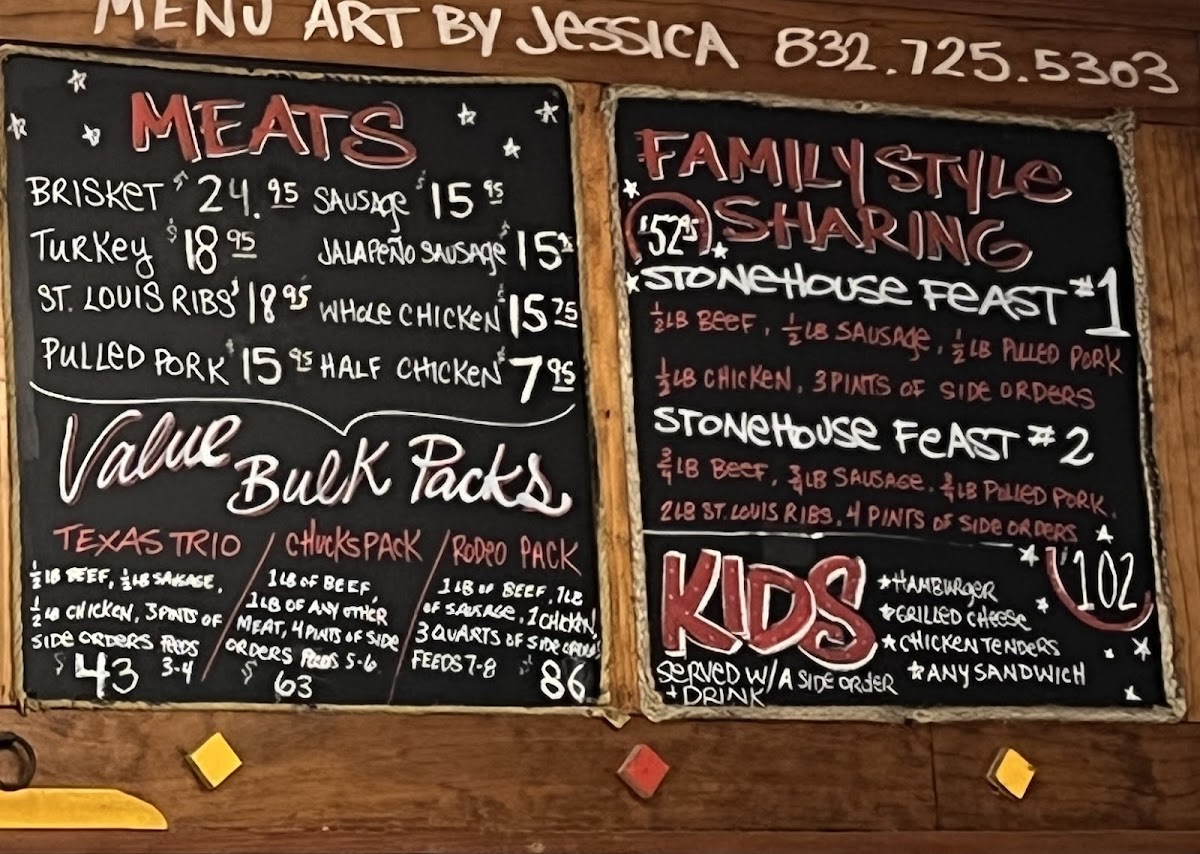 MENU ART BY JESSICA 832.725.5303
MEATS
BRISKET $24.95 SAUSAGE $15.95
TURKEY $18.95 JALAPEÑO SAUSAGE $15.95
ST. LOUIS RIBS $18.95 WHOLE CHICKEN $15.75
PULLED PORK $15.95 HALF CHICKEN $7.95
Value Bulk Packs
TEXAS TRIO
½ LB BEEF, ½ LB SAUSAGE,
½ LB CHICKEN, 3 PINTS OF
SIDE ORDERS FEEDS
$43 3-4
CHUCKS PACK
1 LB OF BEEF,
1 LB OF ANY OTHER
MEAT, 4 PINTS OF SIDE
ORDERS FEEDS 5-6
$63
RODEO PACK
1 LB OF BEEF, 1 LB
OF SAUSAGE, 1 CHICKEN,
3 QUARTS OF SIDE ORDERS
FEEDS 7-8
$86
FAMILY STYLE
SHARING
$52.95
STONEHOUSE FEAST #1
½ LB BEEF, ½ LB SAUSAGE, ½ LB PULLED PORK
½ LB CHICKEN, 3 PINTS OF SIDE ORDERS
STONEHOUSE FEAST #2
¾ LB BEEF, ¾ LB SAUSAGE, ¾ LB PULLED PORK,
2 LB ST. LOUIS RIBS, 4 PINTS OF SIDE ORDERS
$102
KIDS
HAMBURGER
GRILLED CHEESE
CHICKEN TENDERS
ANY SANDWICH
SERVED W/ A SIDE ORDER
+ DRINK